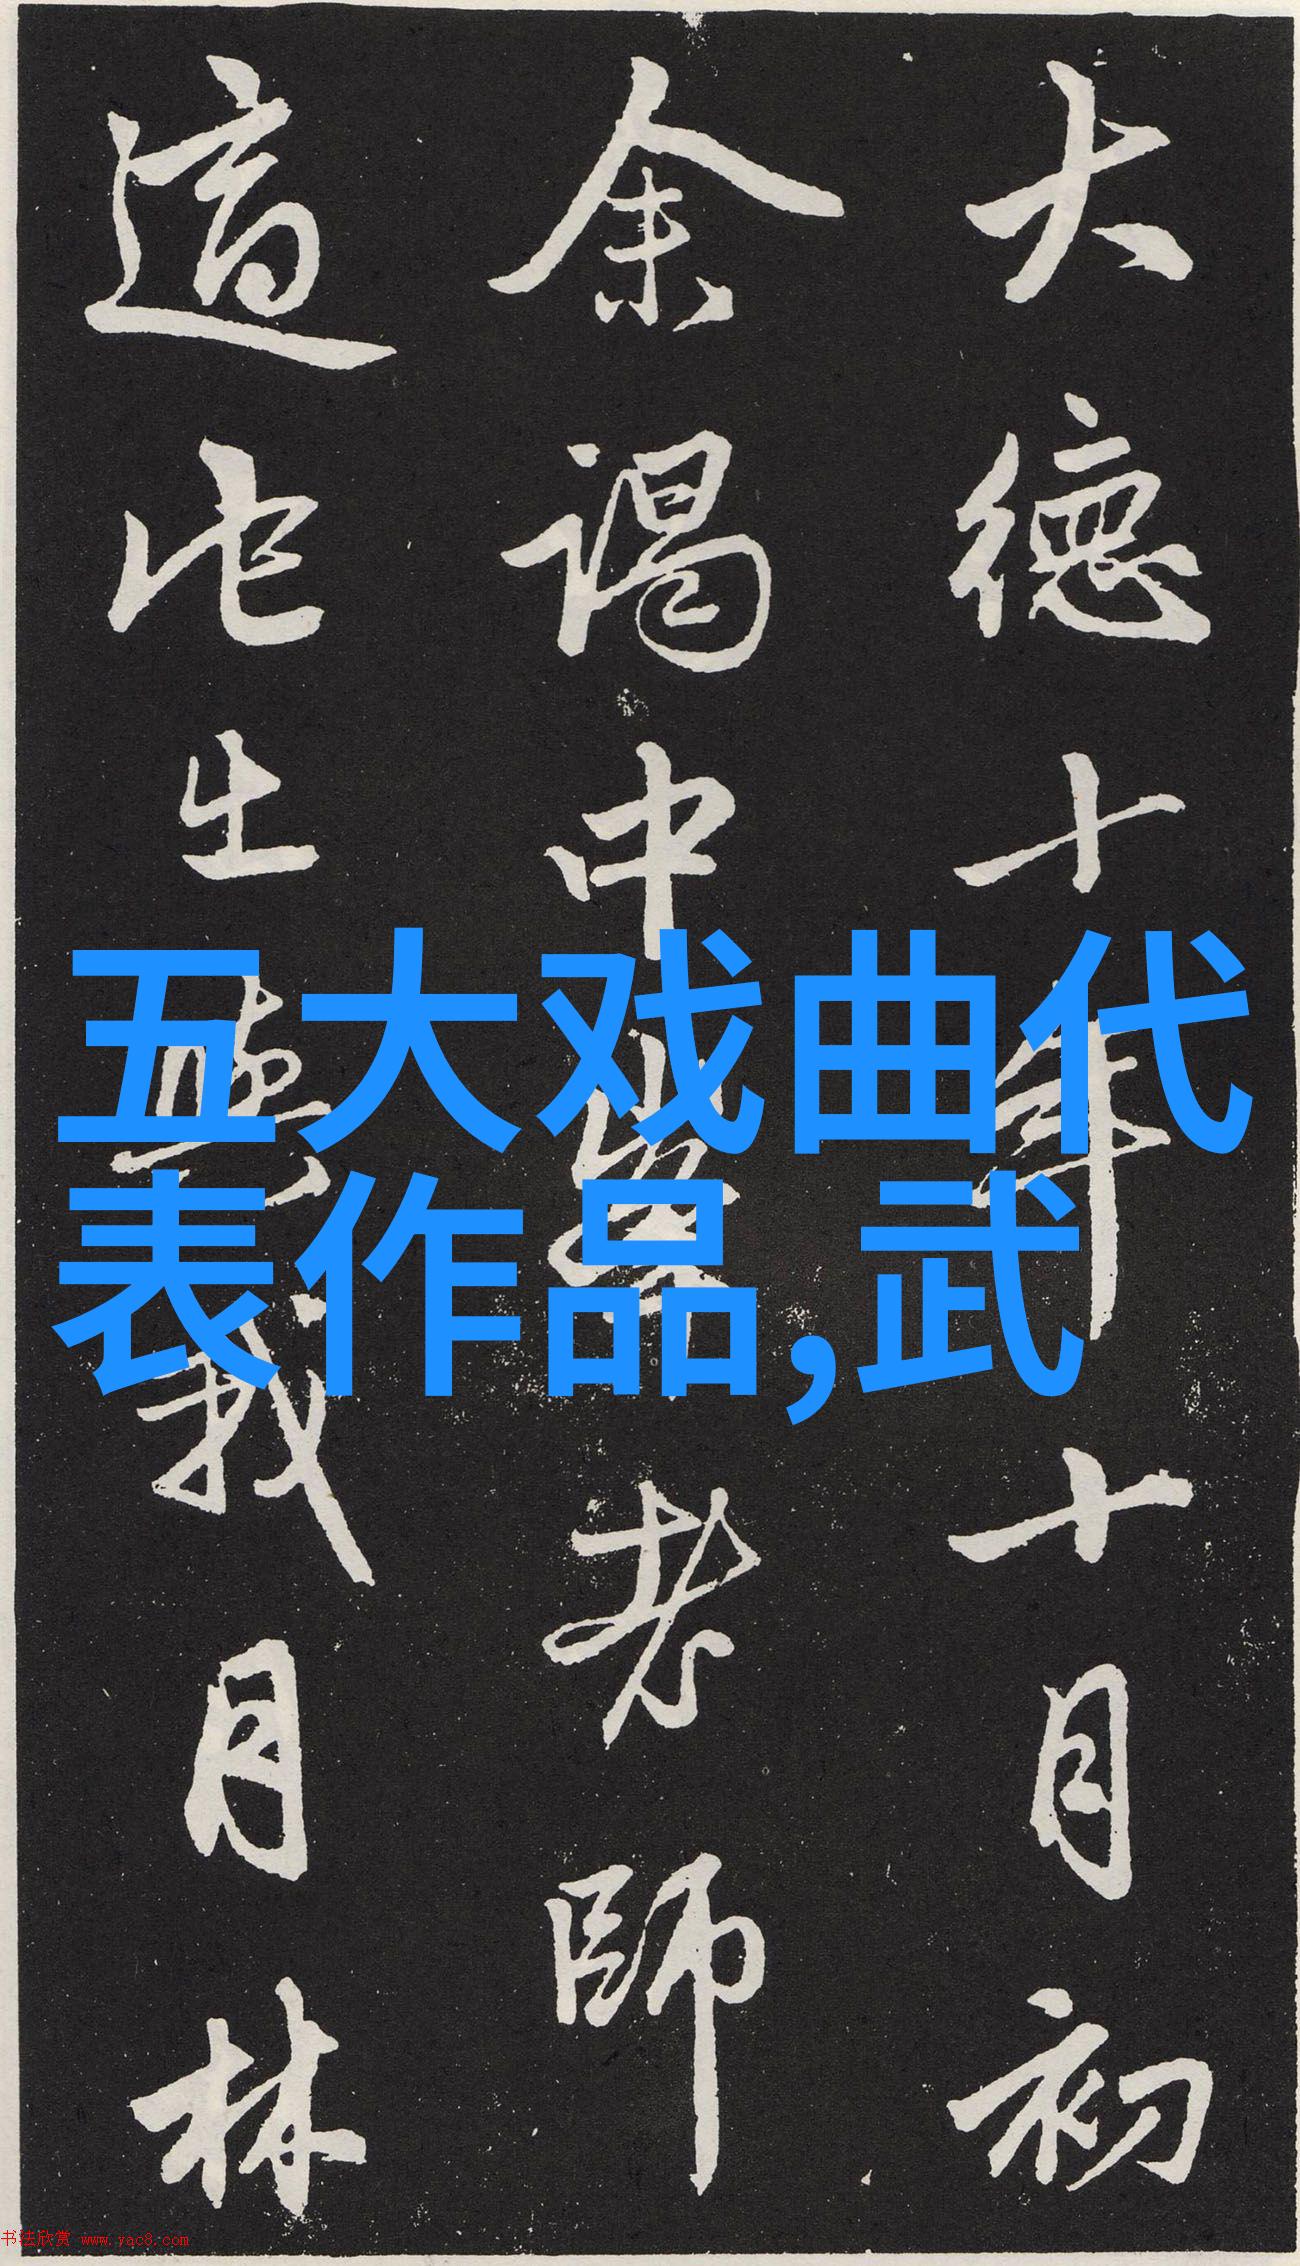 大德十年十月初
余謁中峯老師
適此出我月林
五大戏曲代
表作品,武
书法欣赏 www.yac8.com